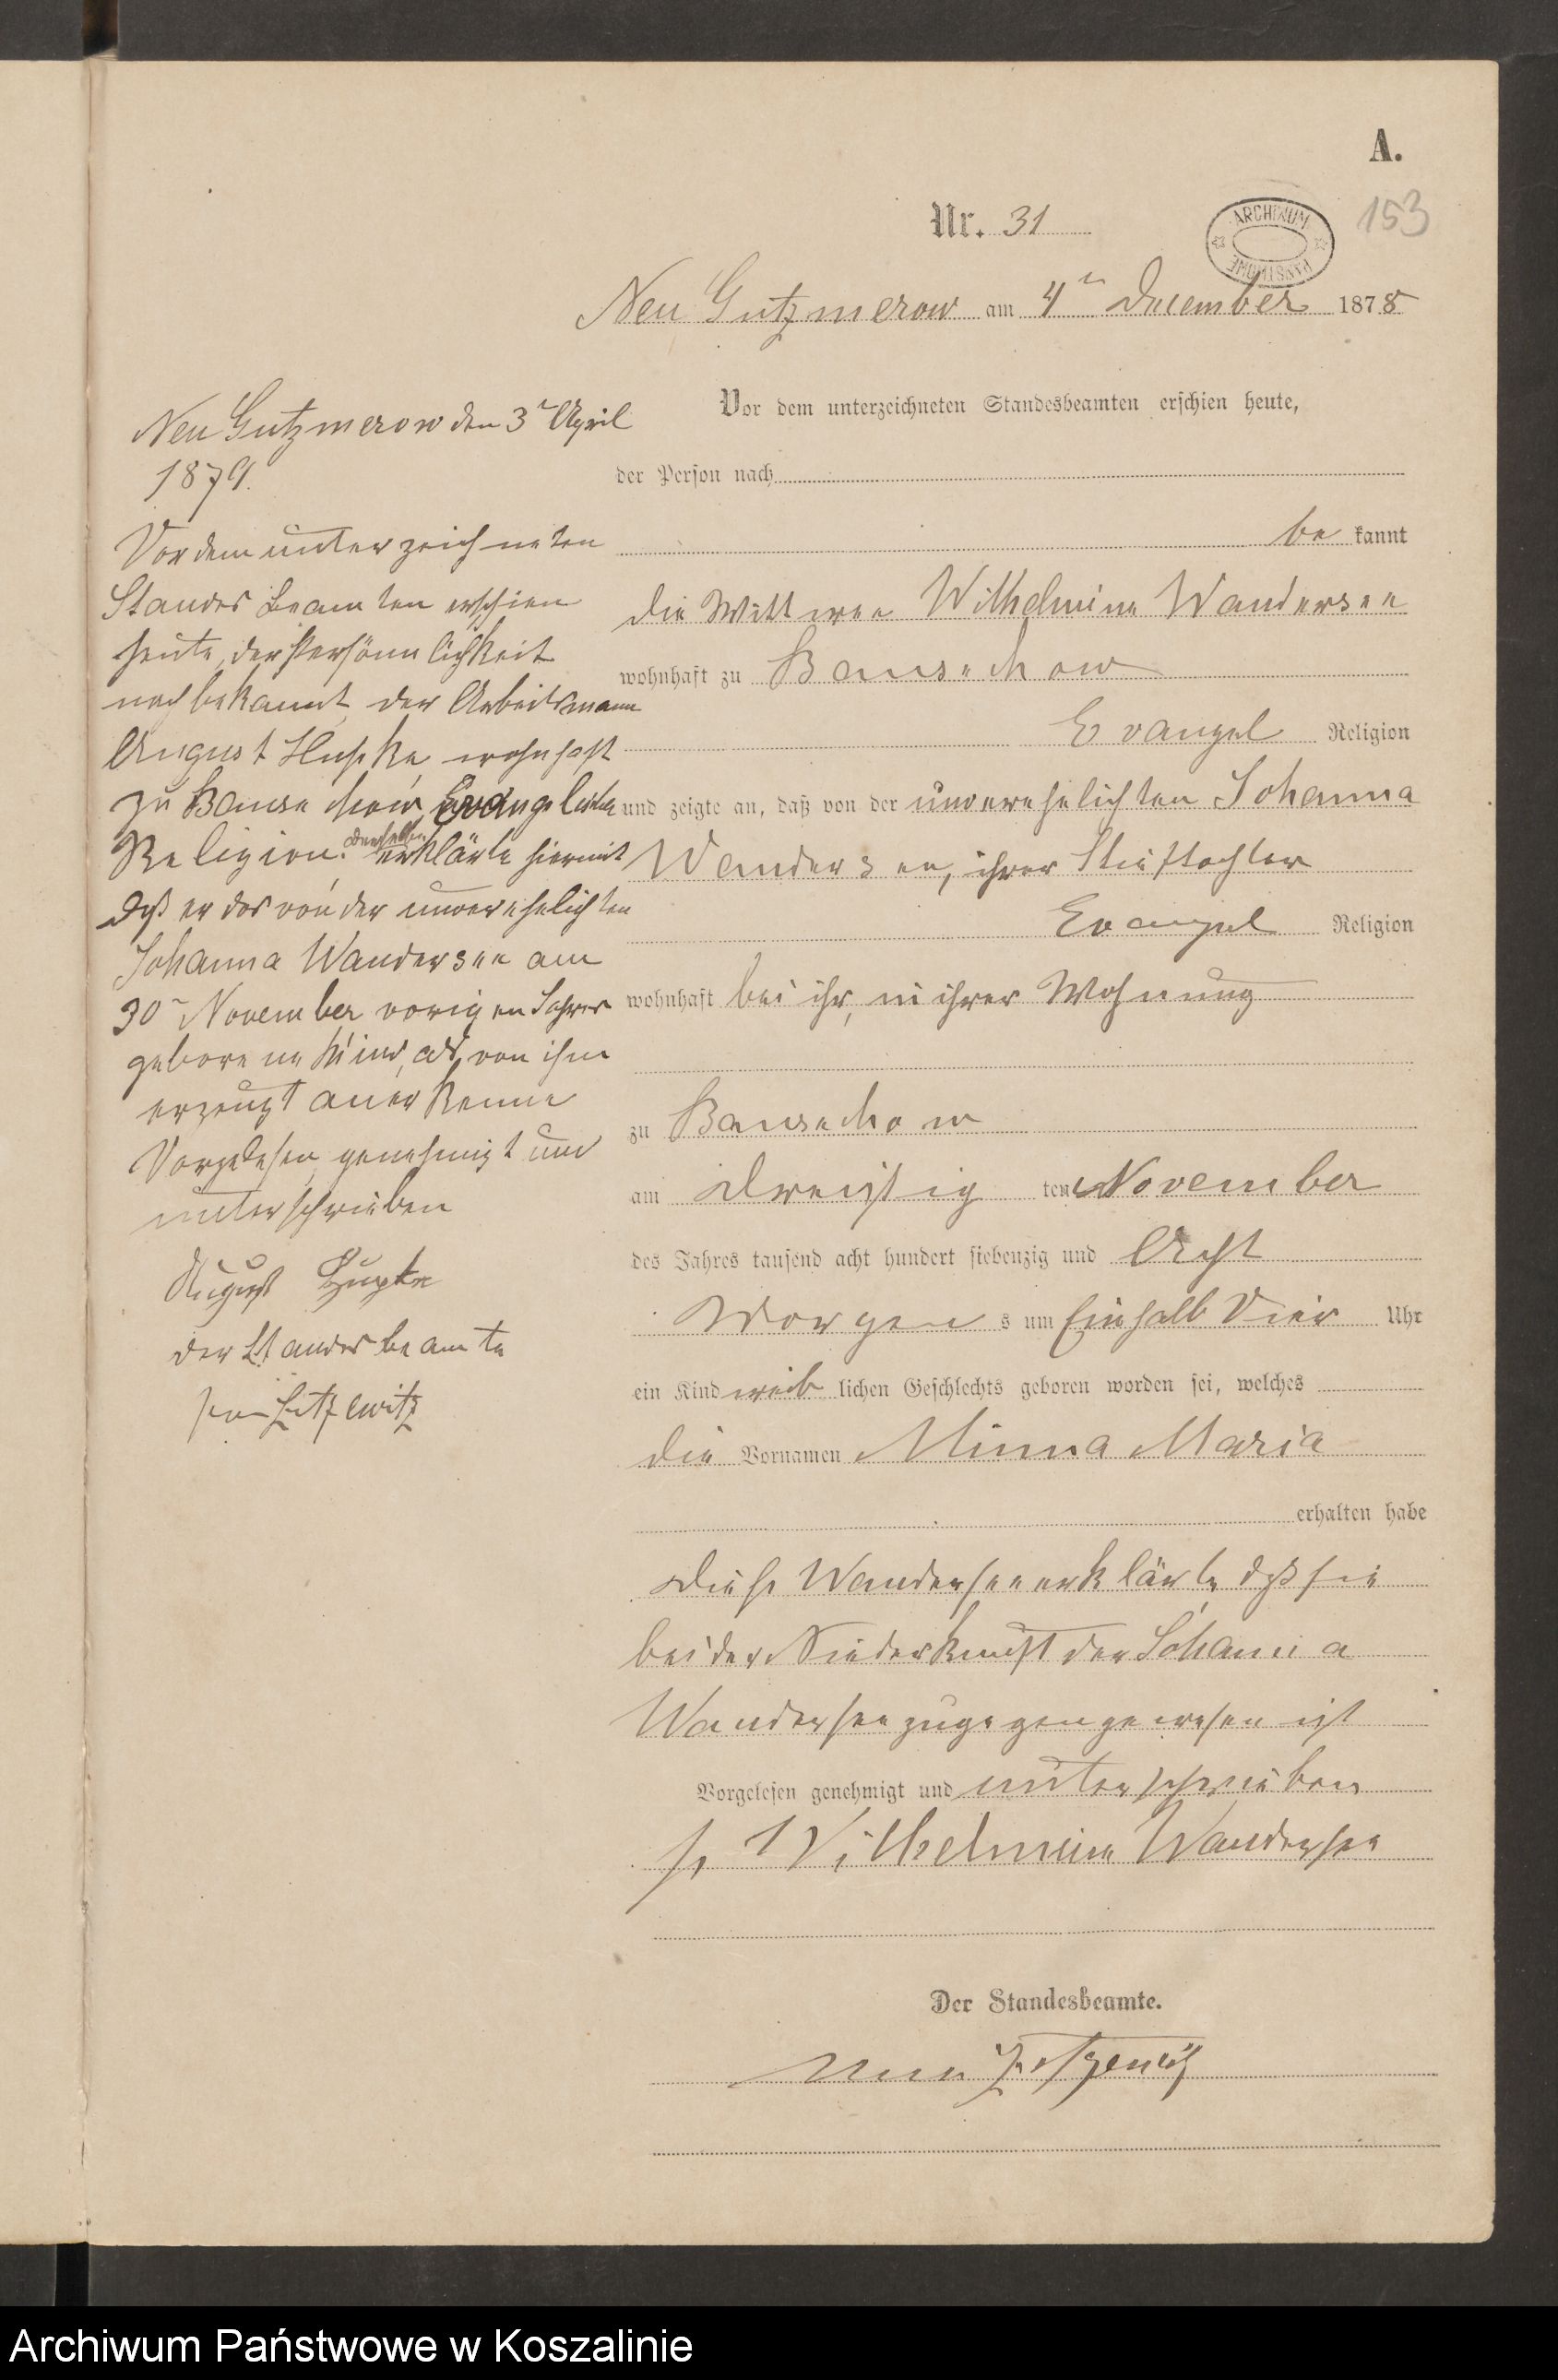 A.
Nr. 31
153
ARCHIWUM PAŃSTWOWE
Neu Gutzmerow am 4ten December 1878
Vor dem unterzeichneten Standesbeamten erschien heute,
der Person nach
be kannt
die Wittwe Wilhelmine Wandersee
wohnhaft zu Bansekow
Evangel Religion
und zeigte an, daß von der unverehelichten Johanna
Wandersee, ihrer Stieftochter
Evangel Religion
wohnhaft bei ihr, in ihrer Wohnung
zu Bansekow
am Dreißig ten November
des Jahres tausend acht hundert siebenzig und Acht
Morgen s um Einhalb Vier Uhr
ein Kind weib lichen Geschlechts geboren worden sei, welches
die Vornamen Minna Maria
erhalten habe
Diese Wandersee erklärte daß sie
bei der Niederkunft der Johanna
Wandersee zugegen gewesen ist
Vorgelesen genehmigt und unterschrieben
Wilhelmine Wandersee
Der Standesbeamte.
Neu Gutzmerow den 3ten April
1879.
Vor dem unterzeichneten
Standes Beamten erschien
heute, der Persönnlichkeit
nach bekannt der Arbeitsmann
August wohnhaft
zu Bansekow, Evangelischer
Religion. Derselbe erklärte hiermit
daß er das von der unverehelichten
Johanna Wandersee am
30ten November vorigen Jahres
geborene Kind, als von ihm
erzeugt anerkenne
Vorgelesen genehmigt und
unterschrieben
August
der Standesbeamte
Archiwum Państwowe w Koszalinie